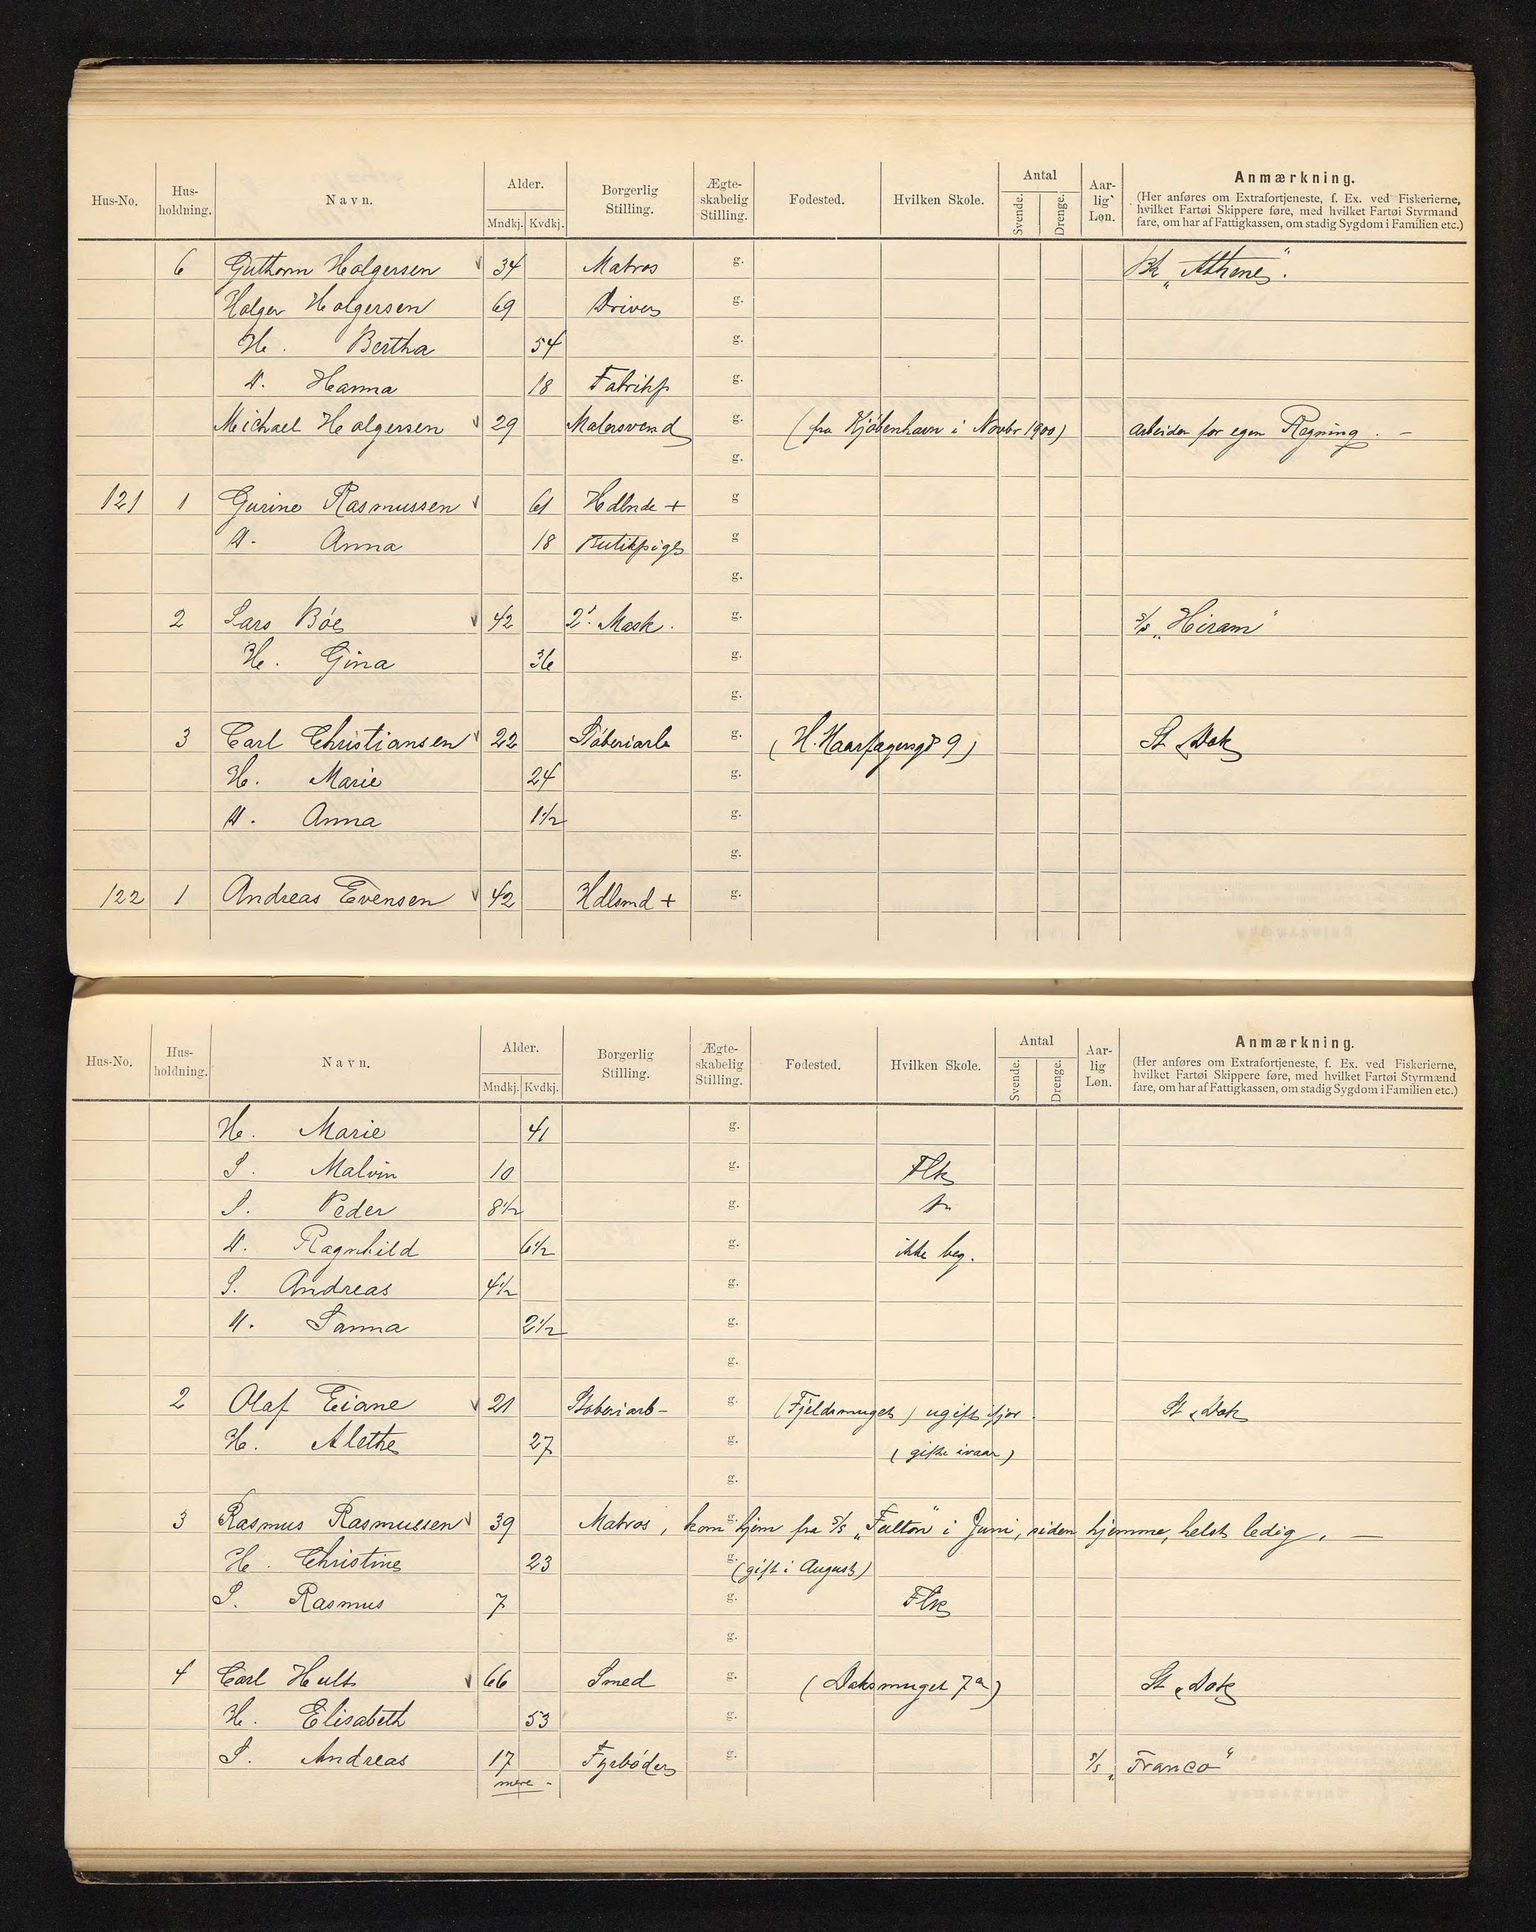 Hus-No. Hus-holdning. Navn. Alder. Mndkj. Kvdkj. Borgerlig Stilling. Ægte-skabelig Stilling. Fødested. Hvilken Skole. Antal Svende. Drenge. Aar-lig Løn. Anmærkning.
(Her anføres om Extrafortjeneste, f. Ex. ved Fiskerierne,
hvilket Fartøi Skippere føre, med hvilket Fartøi Styrmand
fare, om har af Fattigkassen, om stadig Sygdom i Familien etc.)
6 Guthorm Holgersen √ 34 Matros g. Bk „Athene“.
Holger Holgersen 69 Driver g.
H. Bertha 54 g.
D. Hanna 18 Fabrikp g.
Michael Holgersen √ 29 Malersvend g. (fra Kjøbenhavn i Novbr 1900) arbeider for egen Regning. —
g.
121 1 Gurine Rasmussen √ 61 Hdlnde + g
D. Anna 18 Butikpige g
g.
2 Lars Bøe √ 42 2' Mask. g. s/s „Hiram“
H. Gina 36 g.
g.
3 Carl Christiansen √ 22 Støberiarb g. (H. Haarfagersgd 9) St. Dok
H. Marie 24 g.
D. Anna 1½ g.
g.
122 1 Andreas Evensen √ 42 Hdlsmd + g.
Hus-No. Hus-holdning. Navn. Alder. Mndkj. Kvdkj. Borgerlig Stilling. Ægte-skabelig Stilling. Fødested. Hvilken Skole. Antal Svende. Drenge. Aar-lig Løn. Anmærkning.
(Her anføres om Extrafortjeneste, f. Ex. ved Fiskerierne,
hvilket Fartøi Skippere føre, med hvilket Fartøi Styrmænd
fare, om har af Fattigkassen, om stadig Sygdom i Familien etc.)
H. Marie 41 g.
S. Malvin 10 g. Flk
S. Peder 8½ g.
D. Ragnhild 6½ g. ikke beg.
S. Andreas 4½ g.
D. Sanna 2½ g.
g.
2 Olaf Eiane √ 21 Støberiarb- g. (Fjeldsmuget) ugift ifjor. St. Dok
H. Alethe 27 g. (gifte ivaar)
g.
3 Rasmus Rasmussen √ 39 Matros, kom g. hjem fra s/s „Fulton“ i Juni, siden hjemme, helst ledig. —
H. Christine 23 g. (gift i August)
S. Rasmus 7 g. Flk
g.
4 Carl Hult √ 66 Smed g. (Doksmuget 7a) St. Dok
H. Elisabeth 53 g.
S. Andreas 17 Fyrbøder g. s/s „Franco“
mere -